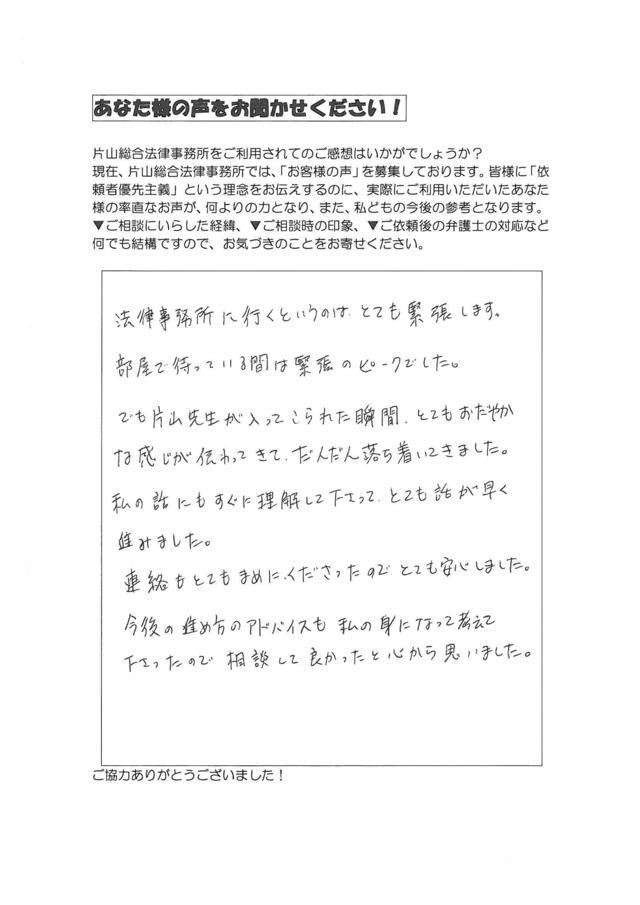 あなた様の声をお聞かせください！
片山総合法律事務所をご利用されてのご感想はいかがでしょうか？
現在、片山総合法律事務所では、「お客様の声」を募集しております。皆様に「依
頼者優先主義」という理念をお伝えするのに、実際にご利用いただいたあなた
様の率直なお声が、何よりの力となり、また、私どもの今後の参考となります。
▼ご相談にいらした経緯、▼ご相談時の印象、▼ご依頼後の弁護士の対応など
何でも結構ですので、お気づきのことをお寄せください。
法律事務所に行くというのは、とても緊張します。
部屋で待っている間は緊張のピークでした。
でも片山先生が入ってこられた瞬間、とてもおだやか
な感じが伝わってきて、だんだん落ち着いてきました。
私の話にもすぐに理解して下さって、とても話が早く
進みました。
連絡もとてもまめに、くださったのでとても安心しました。
今後の進め方のアドバイスも私の身になって考えて
下さったので相談して良かったと心から思いました。
ご協力ありがとうございました！